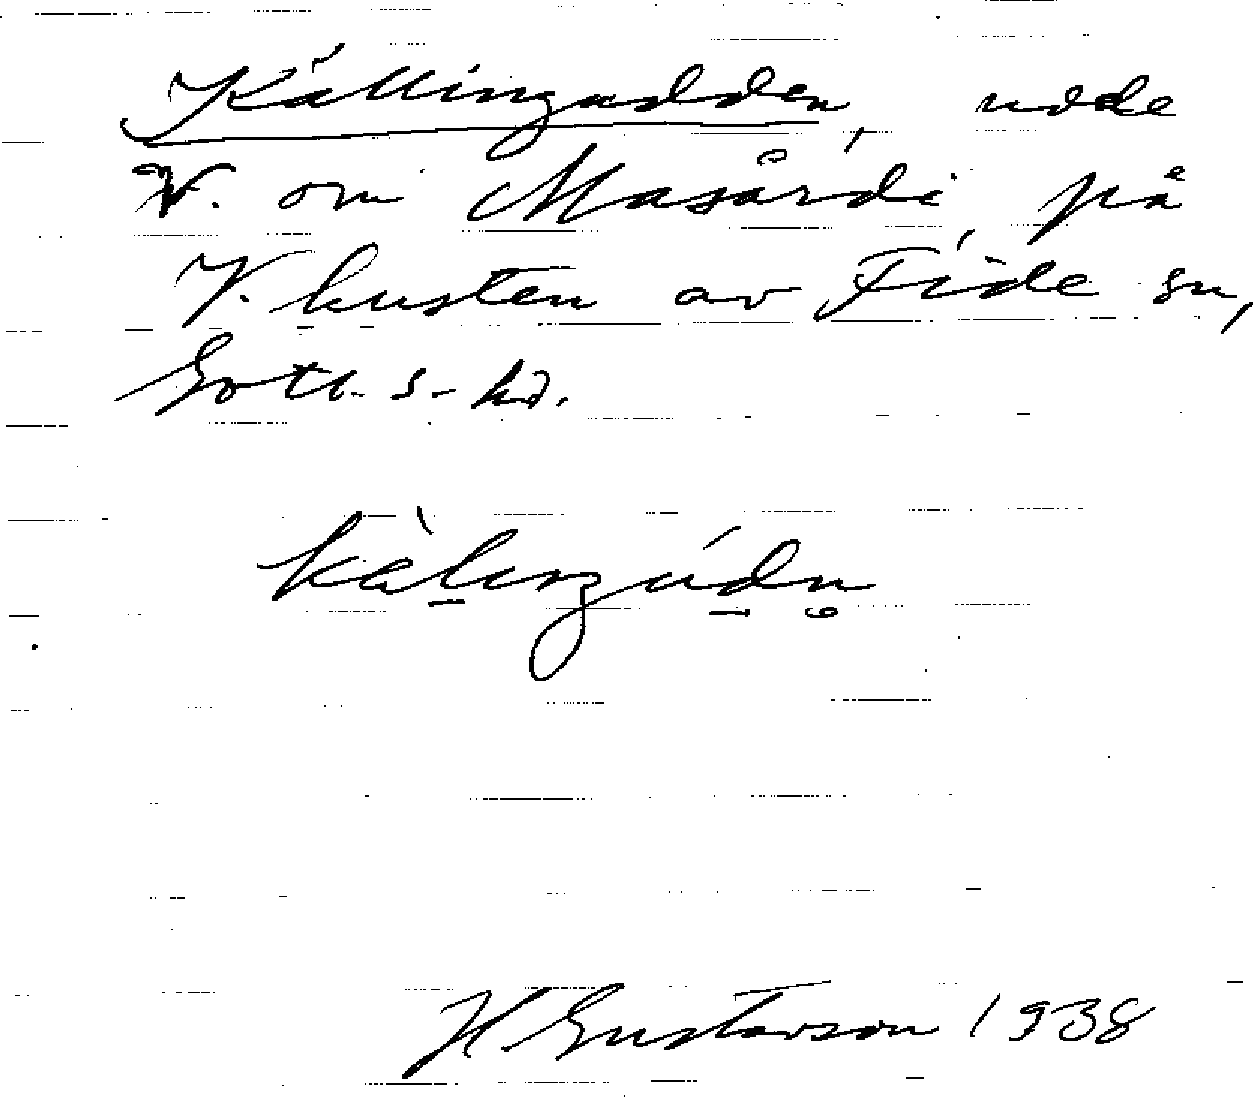 Källingudden, udde
V. om Masårdi på
V. kusten av Fide sn,
Gotl. s. hd.
H. Gustavson 1938